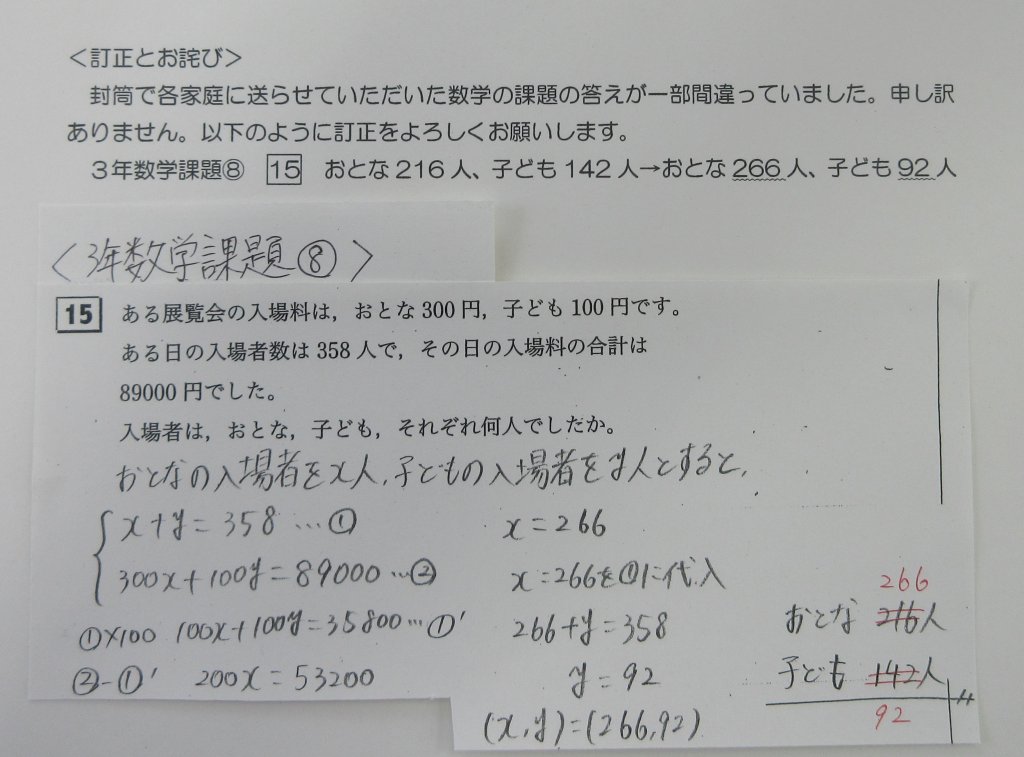 ＜訂正とお詫び＞
封筒で各家庭に送らせていただいた数学の課題の答えが一部間違っていました。申し訳
ありません。以下のように訂正をよろしくお願いします。
３年数学課題⑧　15　おとな216人、子ども142人→おとな266人、子ども92人
〈3年数学課題⑧〉
15　ある展覧会の入場料は，おとな300円，子ども100円です。
ある日の入場者数は358人で，その日の入場料の合計は
89000円でした。
入場者は，おとな，子ども，それぞれ何人でしたか。
おとなの入場者をx人，子どもの入場者をy人とすると，
x+y=358 …①
300x+100y=89000 …②
①×100 100x+100y=35800…①′
②-①′ 200x=53200
x=266
x=266を①に代入
266+y=358
y=92
(x,y)=(266,92)
266
おとな 216人
子ども 142人
92